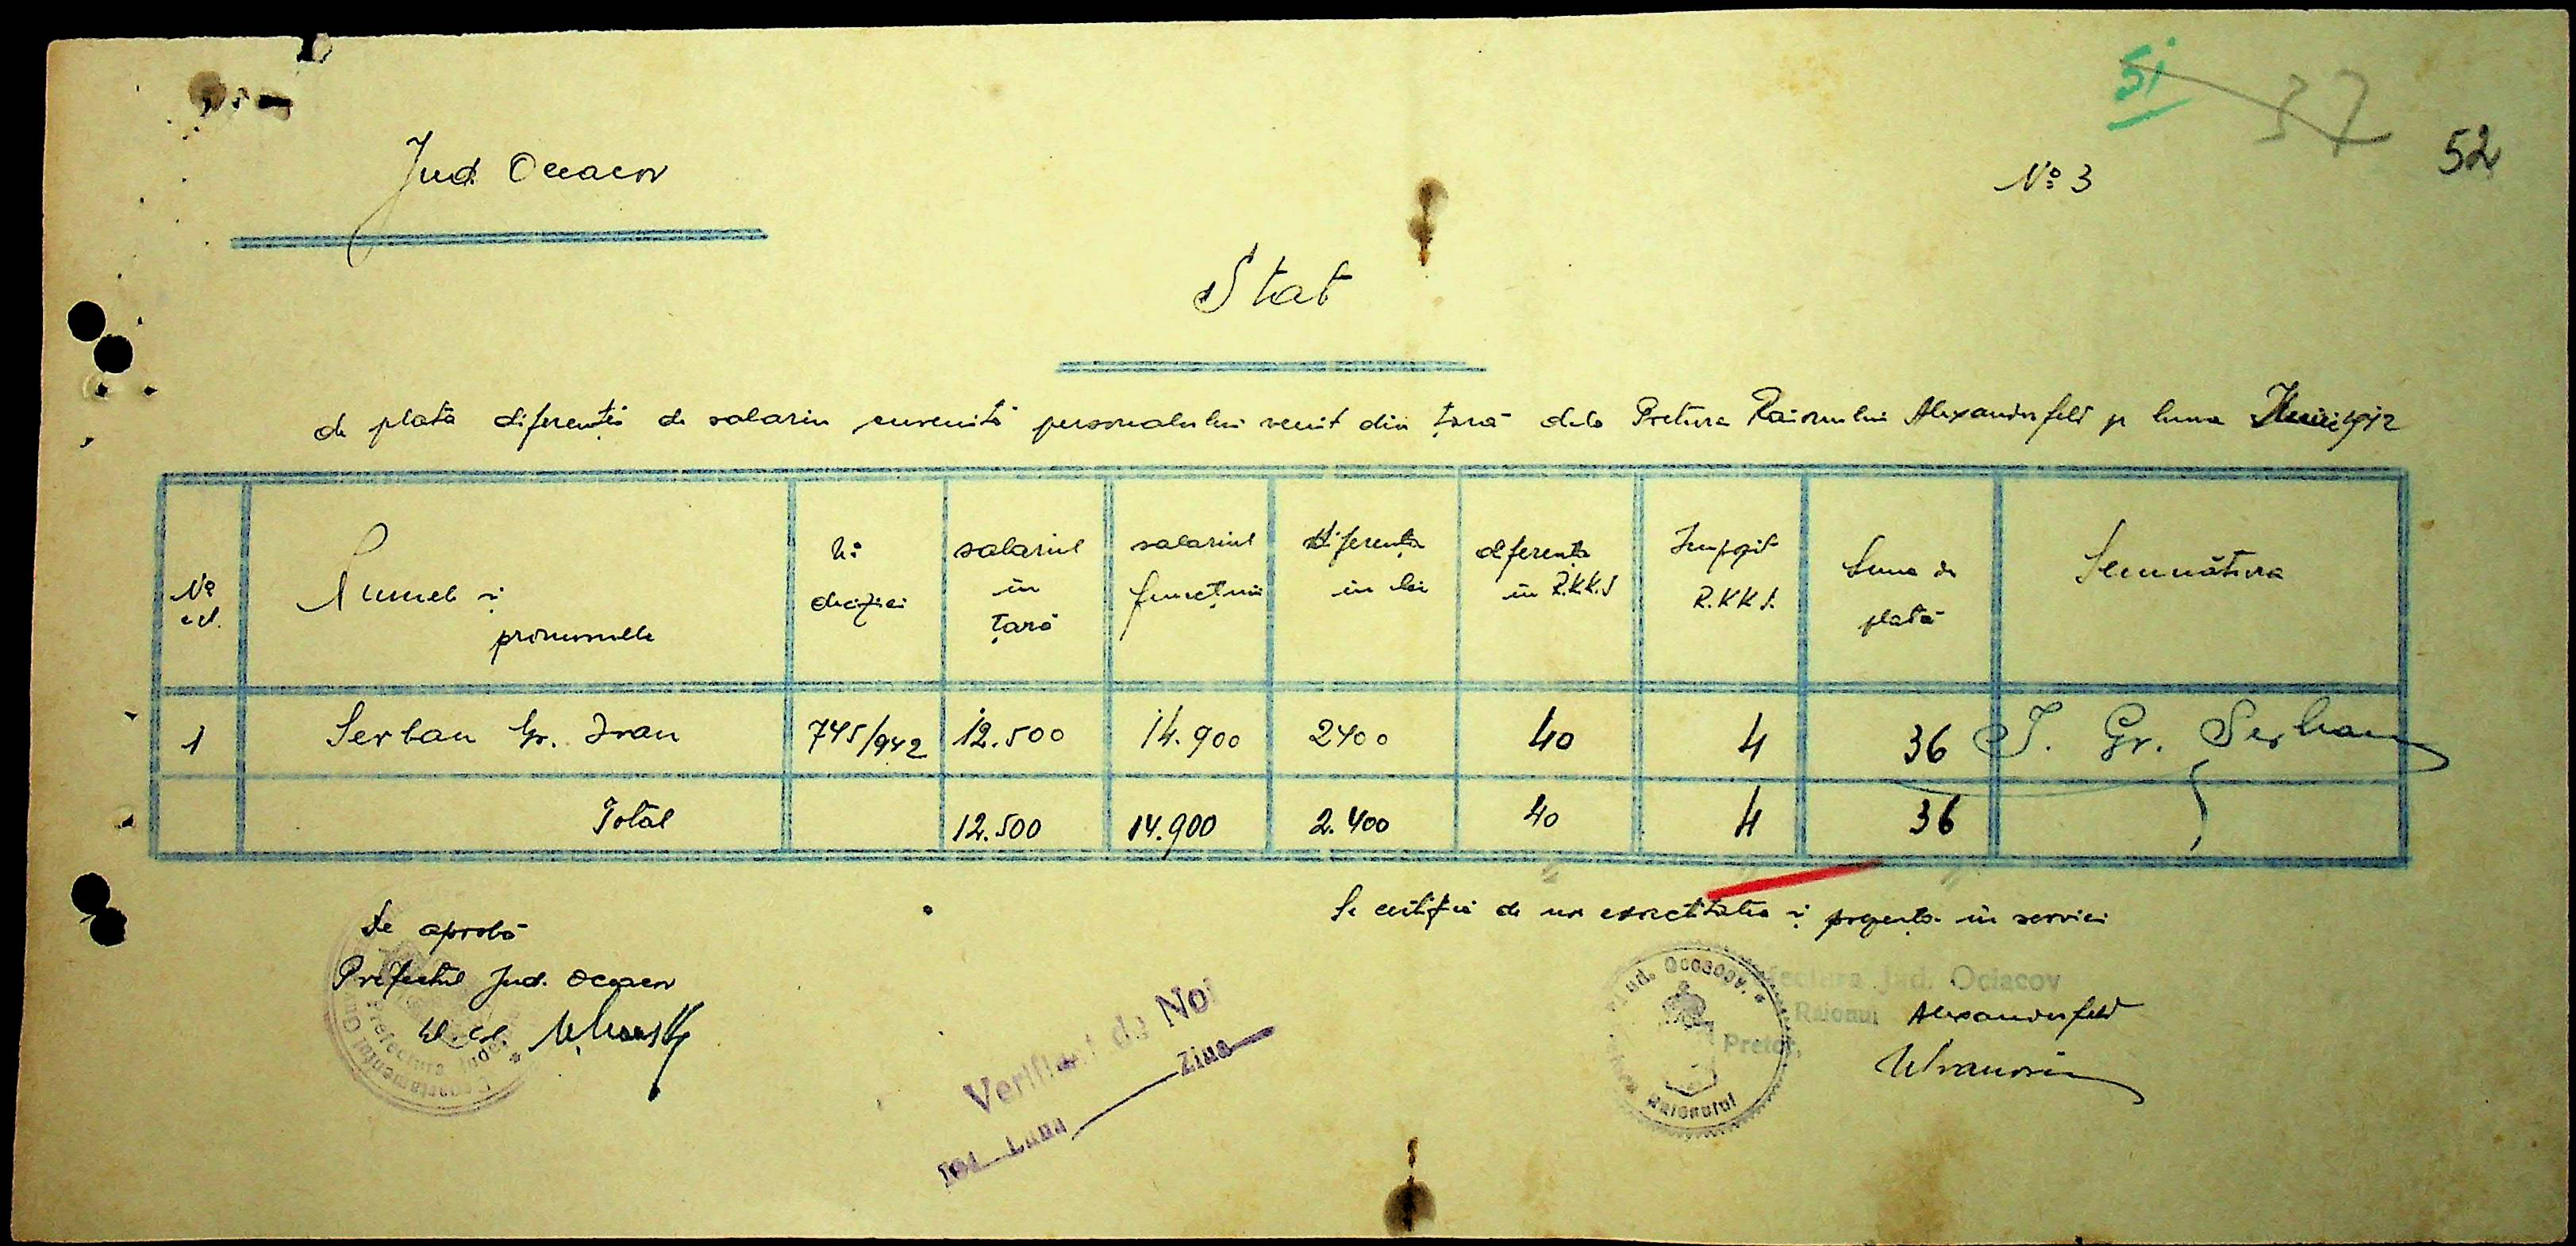 51
37
52
Jud. Oceacov
No 3
Stat
de plată diferenței de salariu cuvenită personalului venit din țară dela Pretura Raionului Alexanderfeld pe luna 1942
No
crt.
Numele și
pronumele
No
deciziei
salariul
în
țară
salariul
funcțiunii
diferența
în lei
diferența
în R.K.K.S
Impozit
R.K.K.S.
Suma de
plată
Semnătura
1 Serban Gr. Ivan 745/942 12.500 14.900 2400 40 4 36 I. Gr. Serban
Total 12.500 14.900 2.400 40 4 36
Se aprobă
Se certifică de noi exactitatea și prezența în serviciu
Prefectul Jud. Oceacov
Prefectura Jud. Ociacov
Raionul Alexanderfeld
Pretor,
Verificat de Noi
194 Luna Ziua